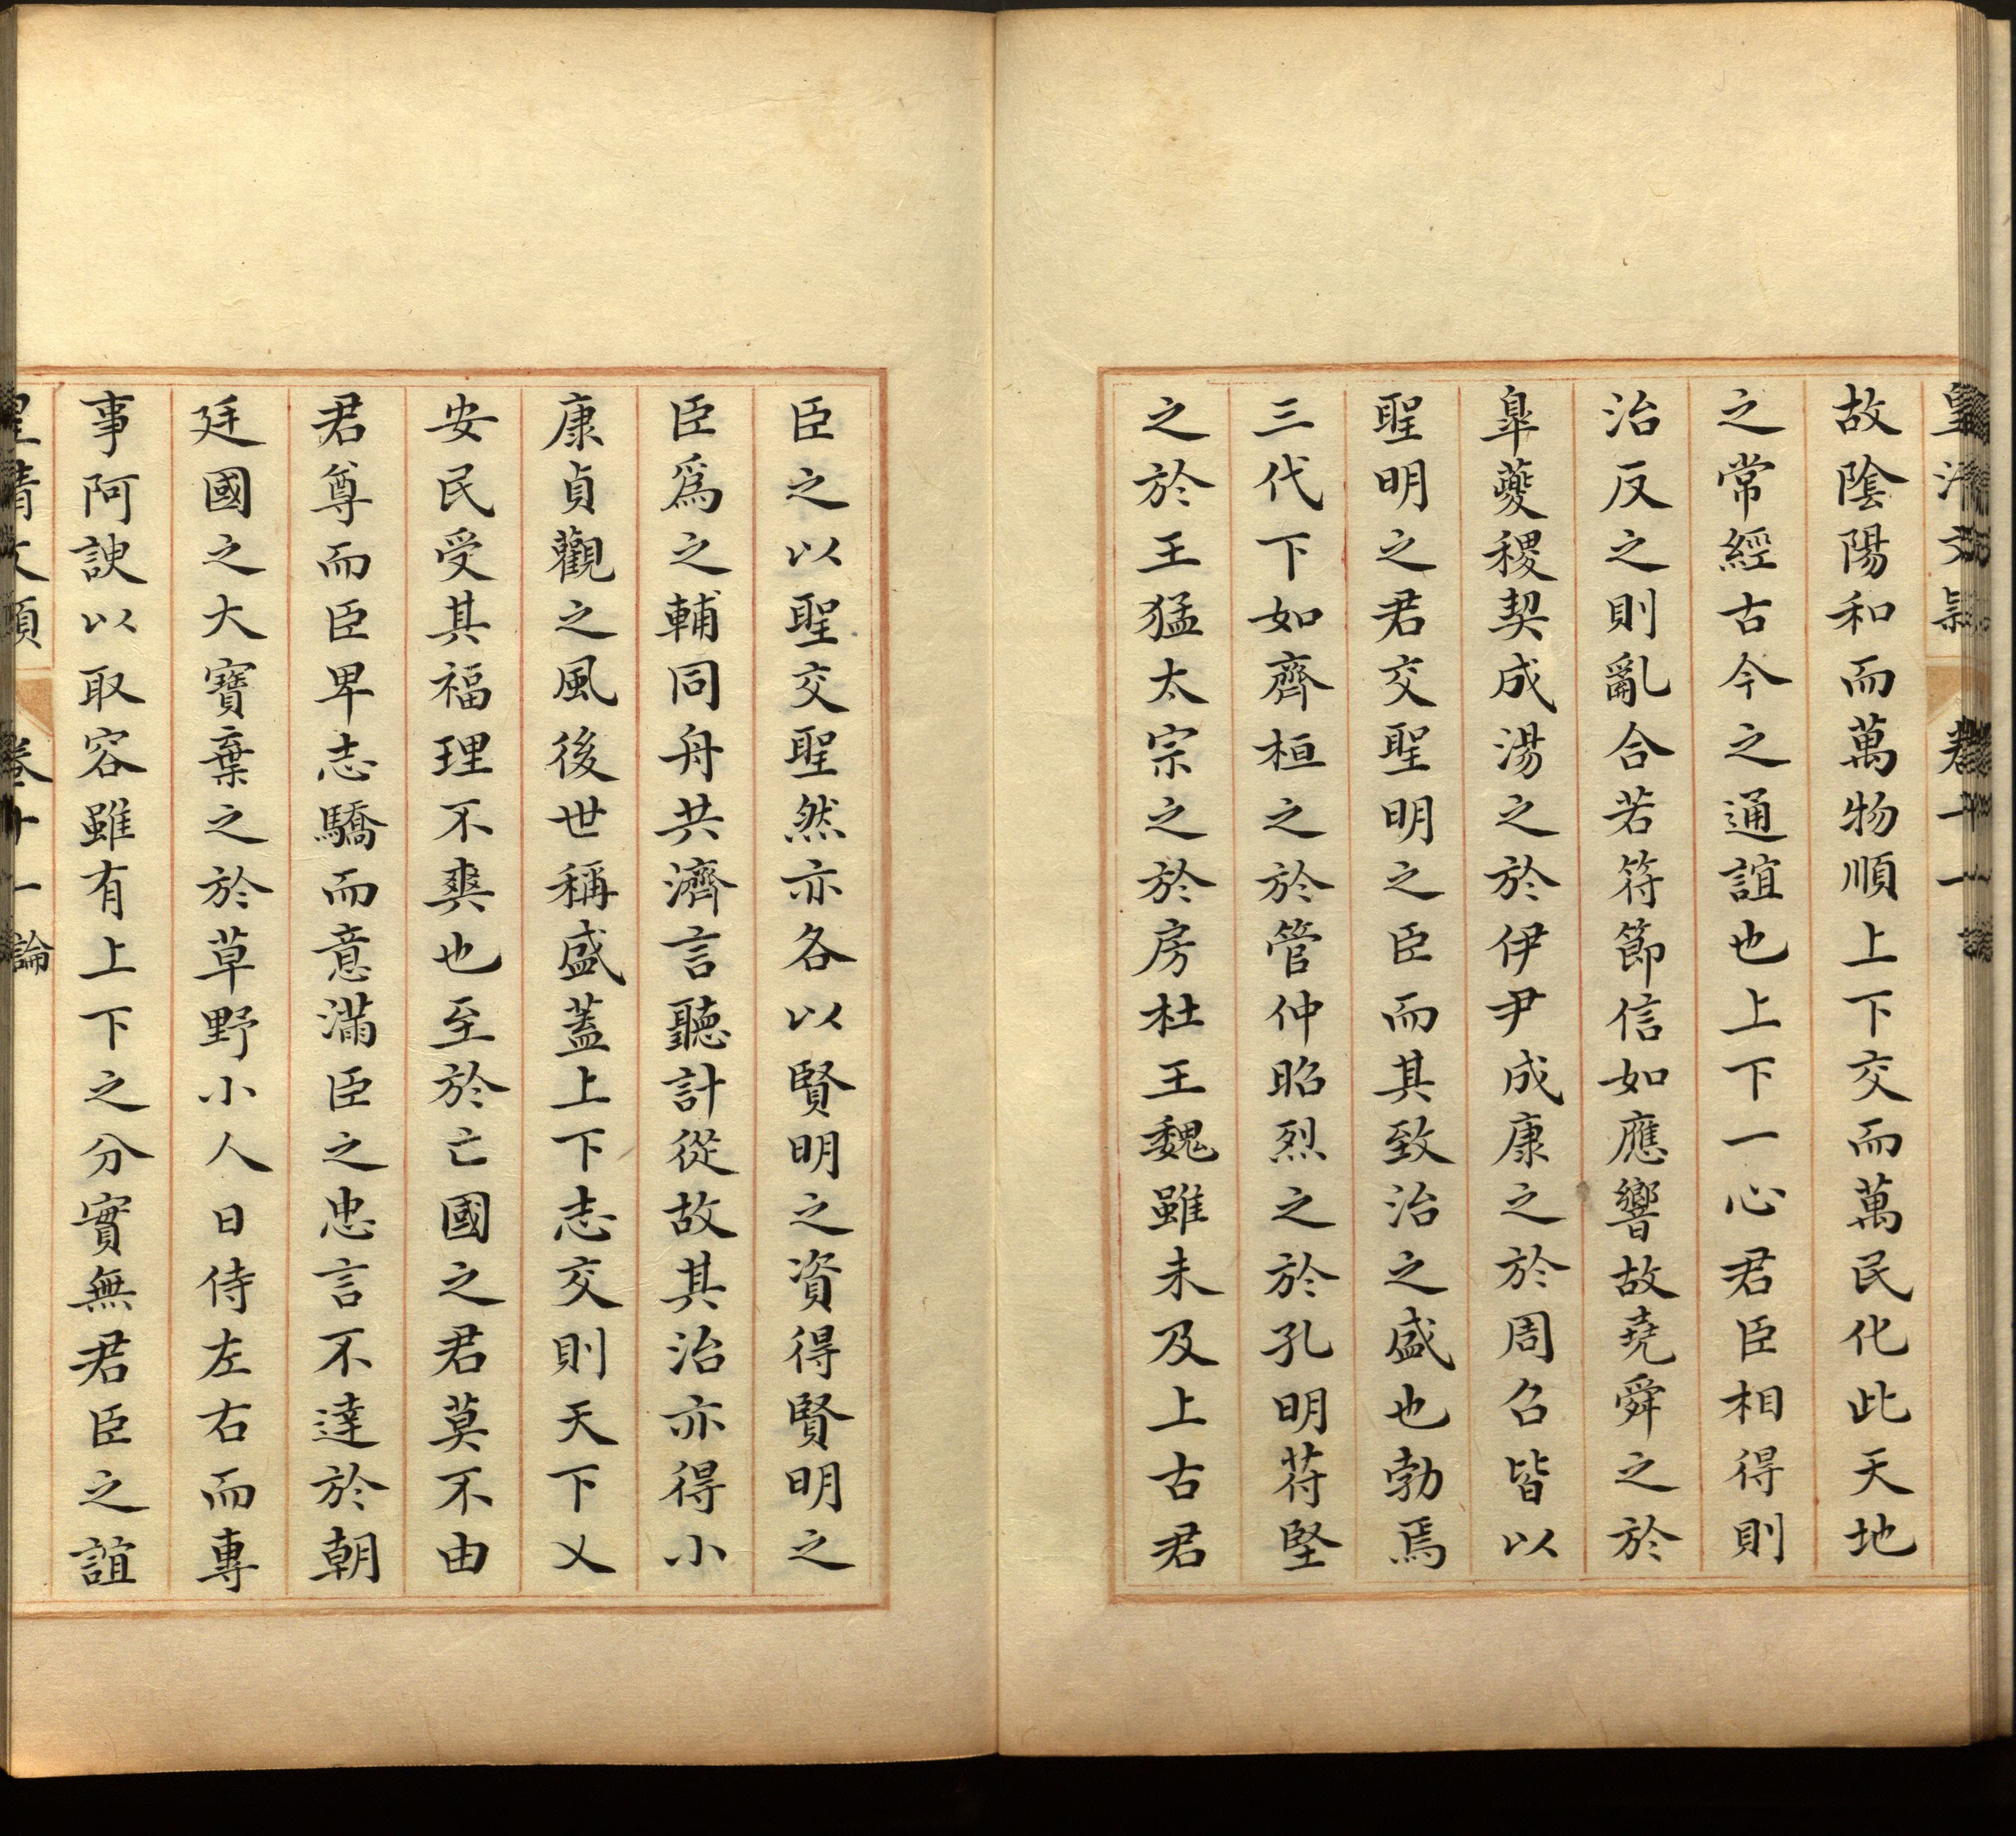 故陰陽和而萬物順上下交而萬民化此天地
之常經古今之通誼也上下一心君臣相得則
治反之則亂合若符節信如應響故堯舜之於
臯夔稷契成湯之於伊尹成康之於周召皆以
聖明之君交聖明之臣而其致治之盛也勃焉
三代下如齊桓之於管仲昭烈之於孔明苻堅
之於王猛太宗之於房杜王魏雖未及上古君
臣之以聖交聖然亦各以賢明之資得賢明之
臣爲之輔同舟共濟言聽計從故其治亦得小
康貞觀之風後世稱盛蓋上下志交則天下乂
安民受其福理不爽也至於亡國之君莫不由
君尊而臣卑志驕而意滿臣之忠言不達於朝
廷國之大寶棄之於草野小人日侍左右而專
事阿諛以取容雖有上下之分實無君臣之誼
皇清文頴 卷十一 論